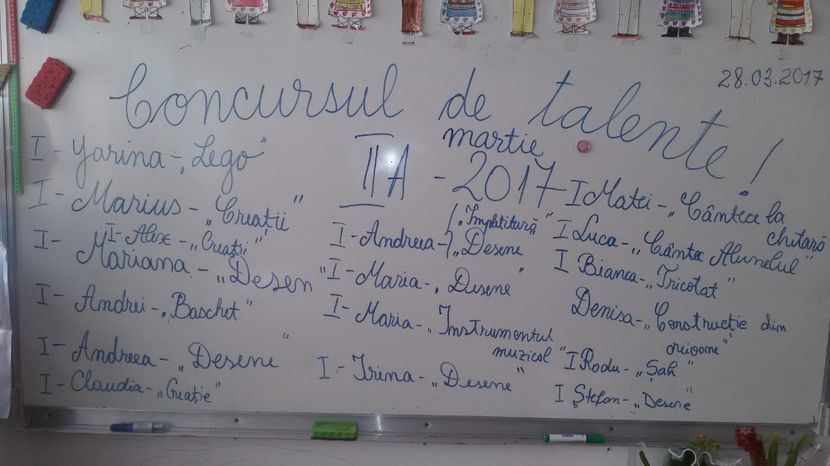 28.03.2017
Concursul de talente!
II A - martie 2017
I - Yarina - „Lego"
I - Marius - „Creații"
I - Alex - „Creații"
I - Mariana - „Desen"
I - Andrei - „Baschet"
I - Andreea - „Desene"
I - Claudia - „Creație"
I - Andreea - „Împletitură"
„Desene
I - Maria - „Desene"
I - Maria - „Instrumentul
muzical"
I - Irina - „Desene"
I Matei - „Cântece la
chitară
I Luca - „Cântec Alunelul"
I Bianca - „Tricotat"
Denisa - „Construcție din
I Radu - „Șah"
I Ștefan - „Desene"